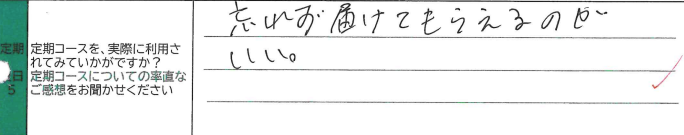 定期
定期コースを、実際に利用さ
れてみていかがですか？
定期コースについての率直な
ご感想をお聞かせください
日
5
忘れず届けてもらえるのが
いい。